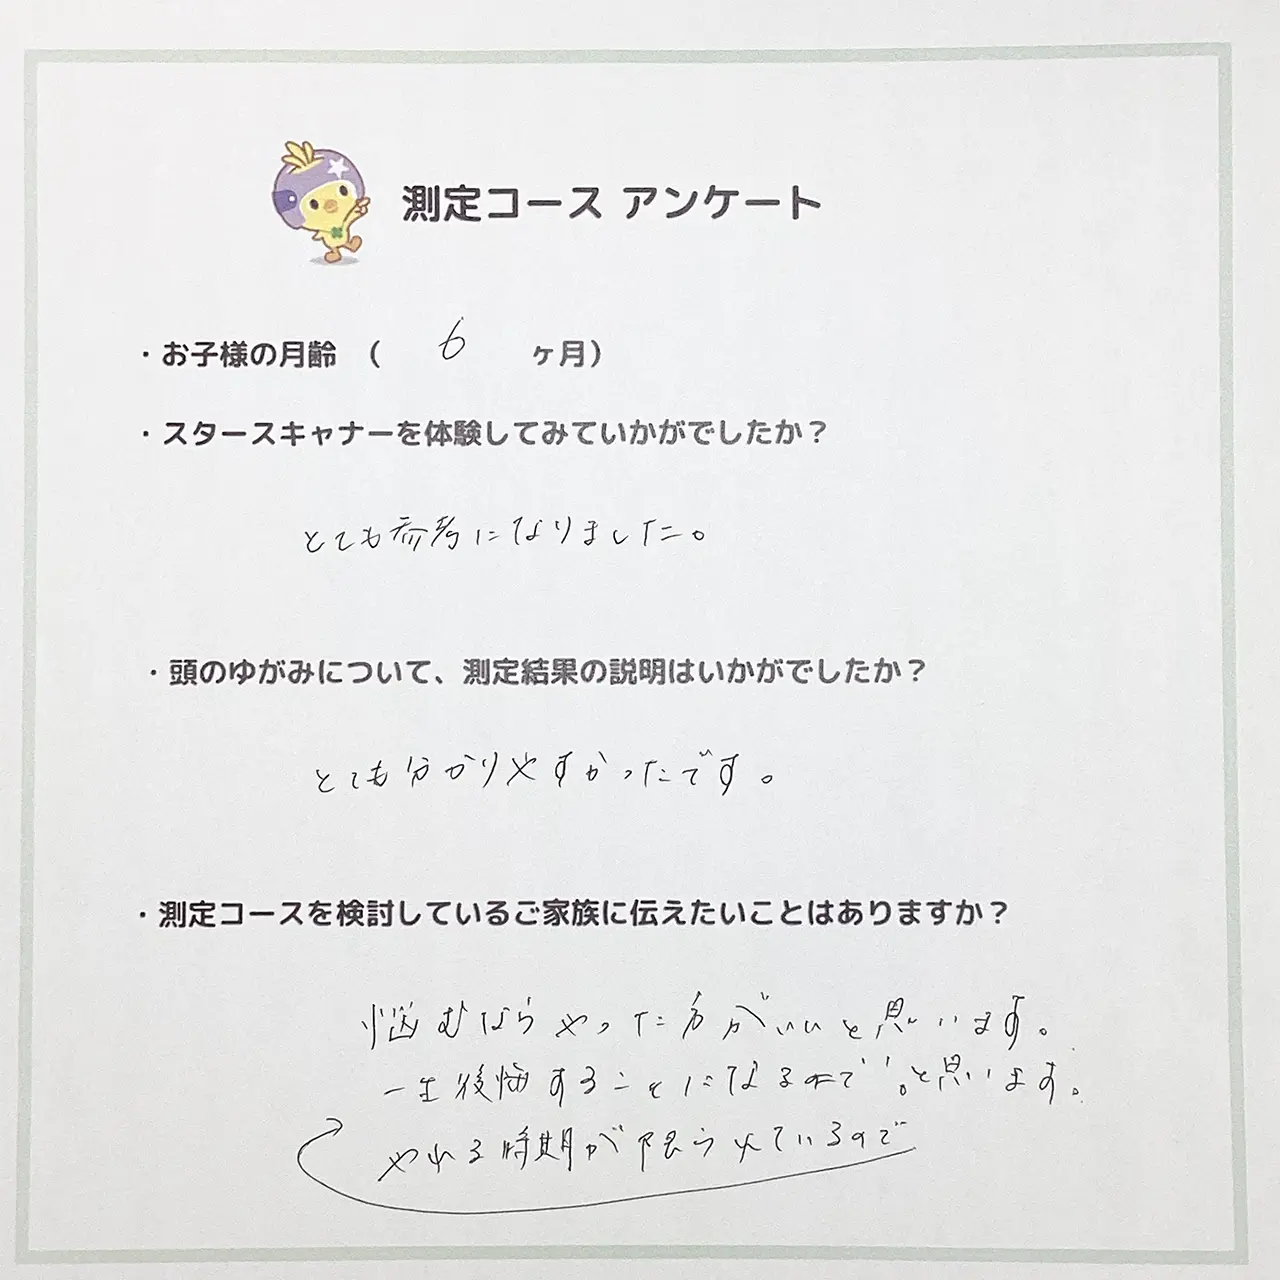 測定コース アンケート
・お子様の月齢 ( 6 ヶ月)
・スタースキャナーを体験してみていかがでしたか?
とても参考になりました。
・頭のゆがみについて、測定結果の説明はいかがでしたか?
とても分かりやすかったです。
・測定コースを検討しているご家族に伝えたいことはありますか?
悩むならやった方がいいと思います。
一生後悔することになるので。と思います。
やれる時期が限られているので